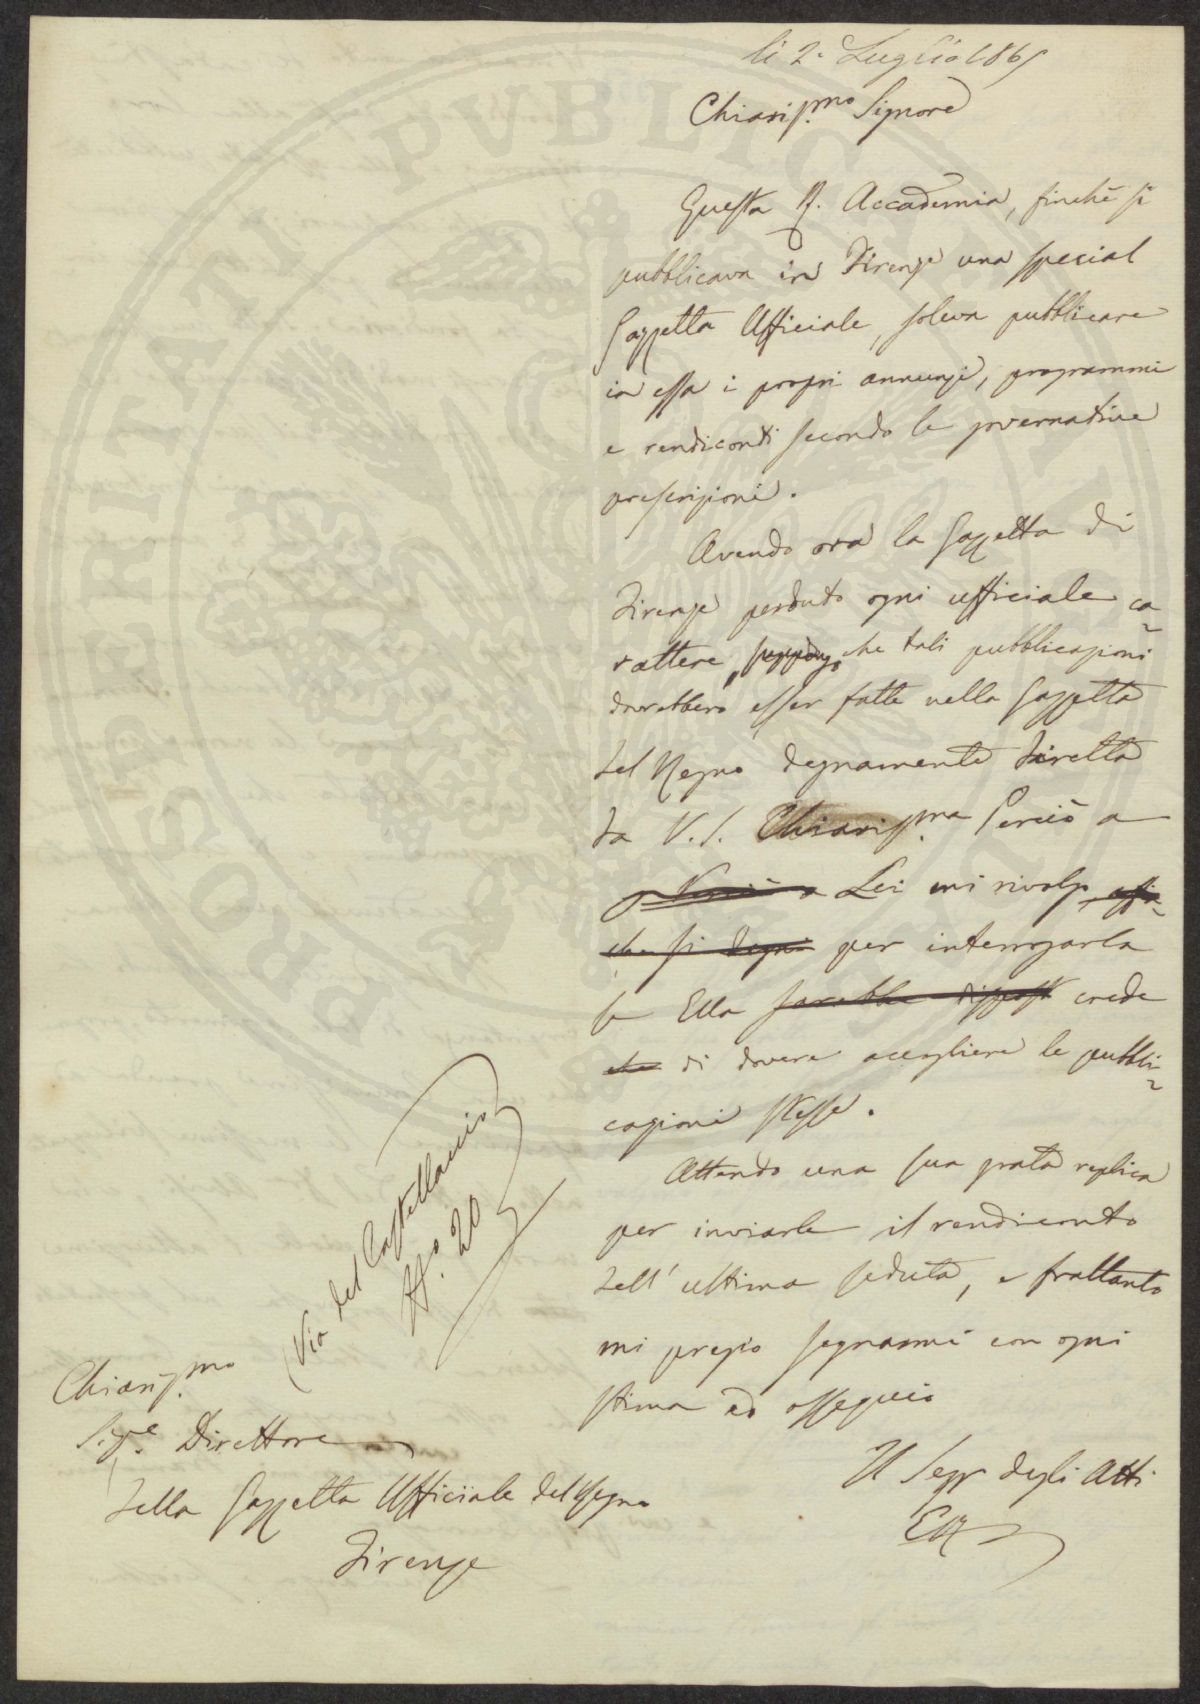 li 2. Luglio 1865
Chiariss.mo Signore
Questa R. Accademia, finchè si
pubblicava in Firenze una special
Gazzetta Ufficiale, soleva pubblicare
in essa i propri annunzi, programmi
e rendiconti secondo le governative
prescrizioni.
Avendo ora la Gazzetta di
Firenze perduto ogni ufficiale ca=
rattere, suppongo che tali pubblicazioni
dovrebbero esser fatte nella Gazzetta
del Regno degnamente diretta
da V. S. Chiariss.ma Perciò a
Lei mi rivolgo
che si degni per interrogarla
se Ella sarebbe disposta crede
che di dovere accogliere le pubbli=
cazioni stesse.
Attendo una sua grata replica
per inviarle il rendiconto
dell'ultima seduta, e frattanto
mi pregio segnarmi con ogni
stima ed ossequio
Il Segr degli Atti
(Via del Castellaccio
No. 20
Chiariss.mo
Sig.e Direttore
della Gazzetta Ufficiale del Regno
Firenze
PROSPERITATI PVBLICAE